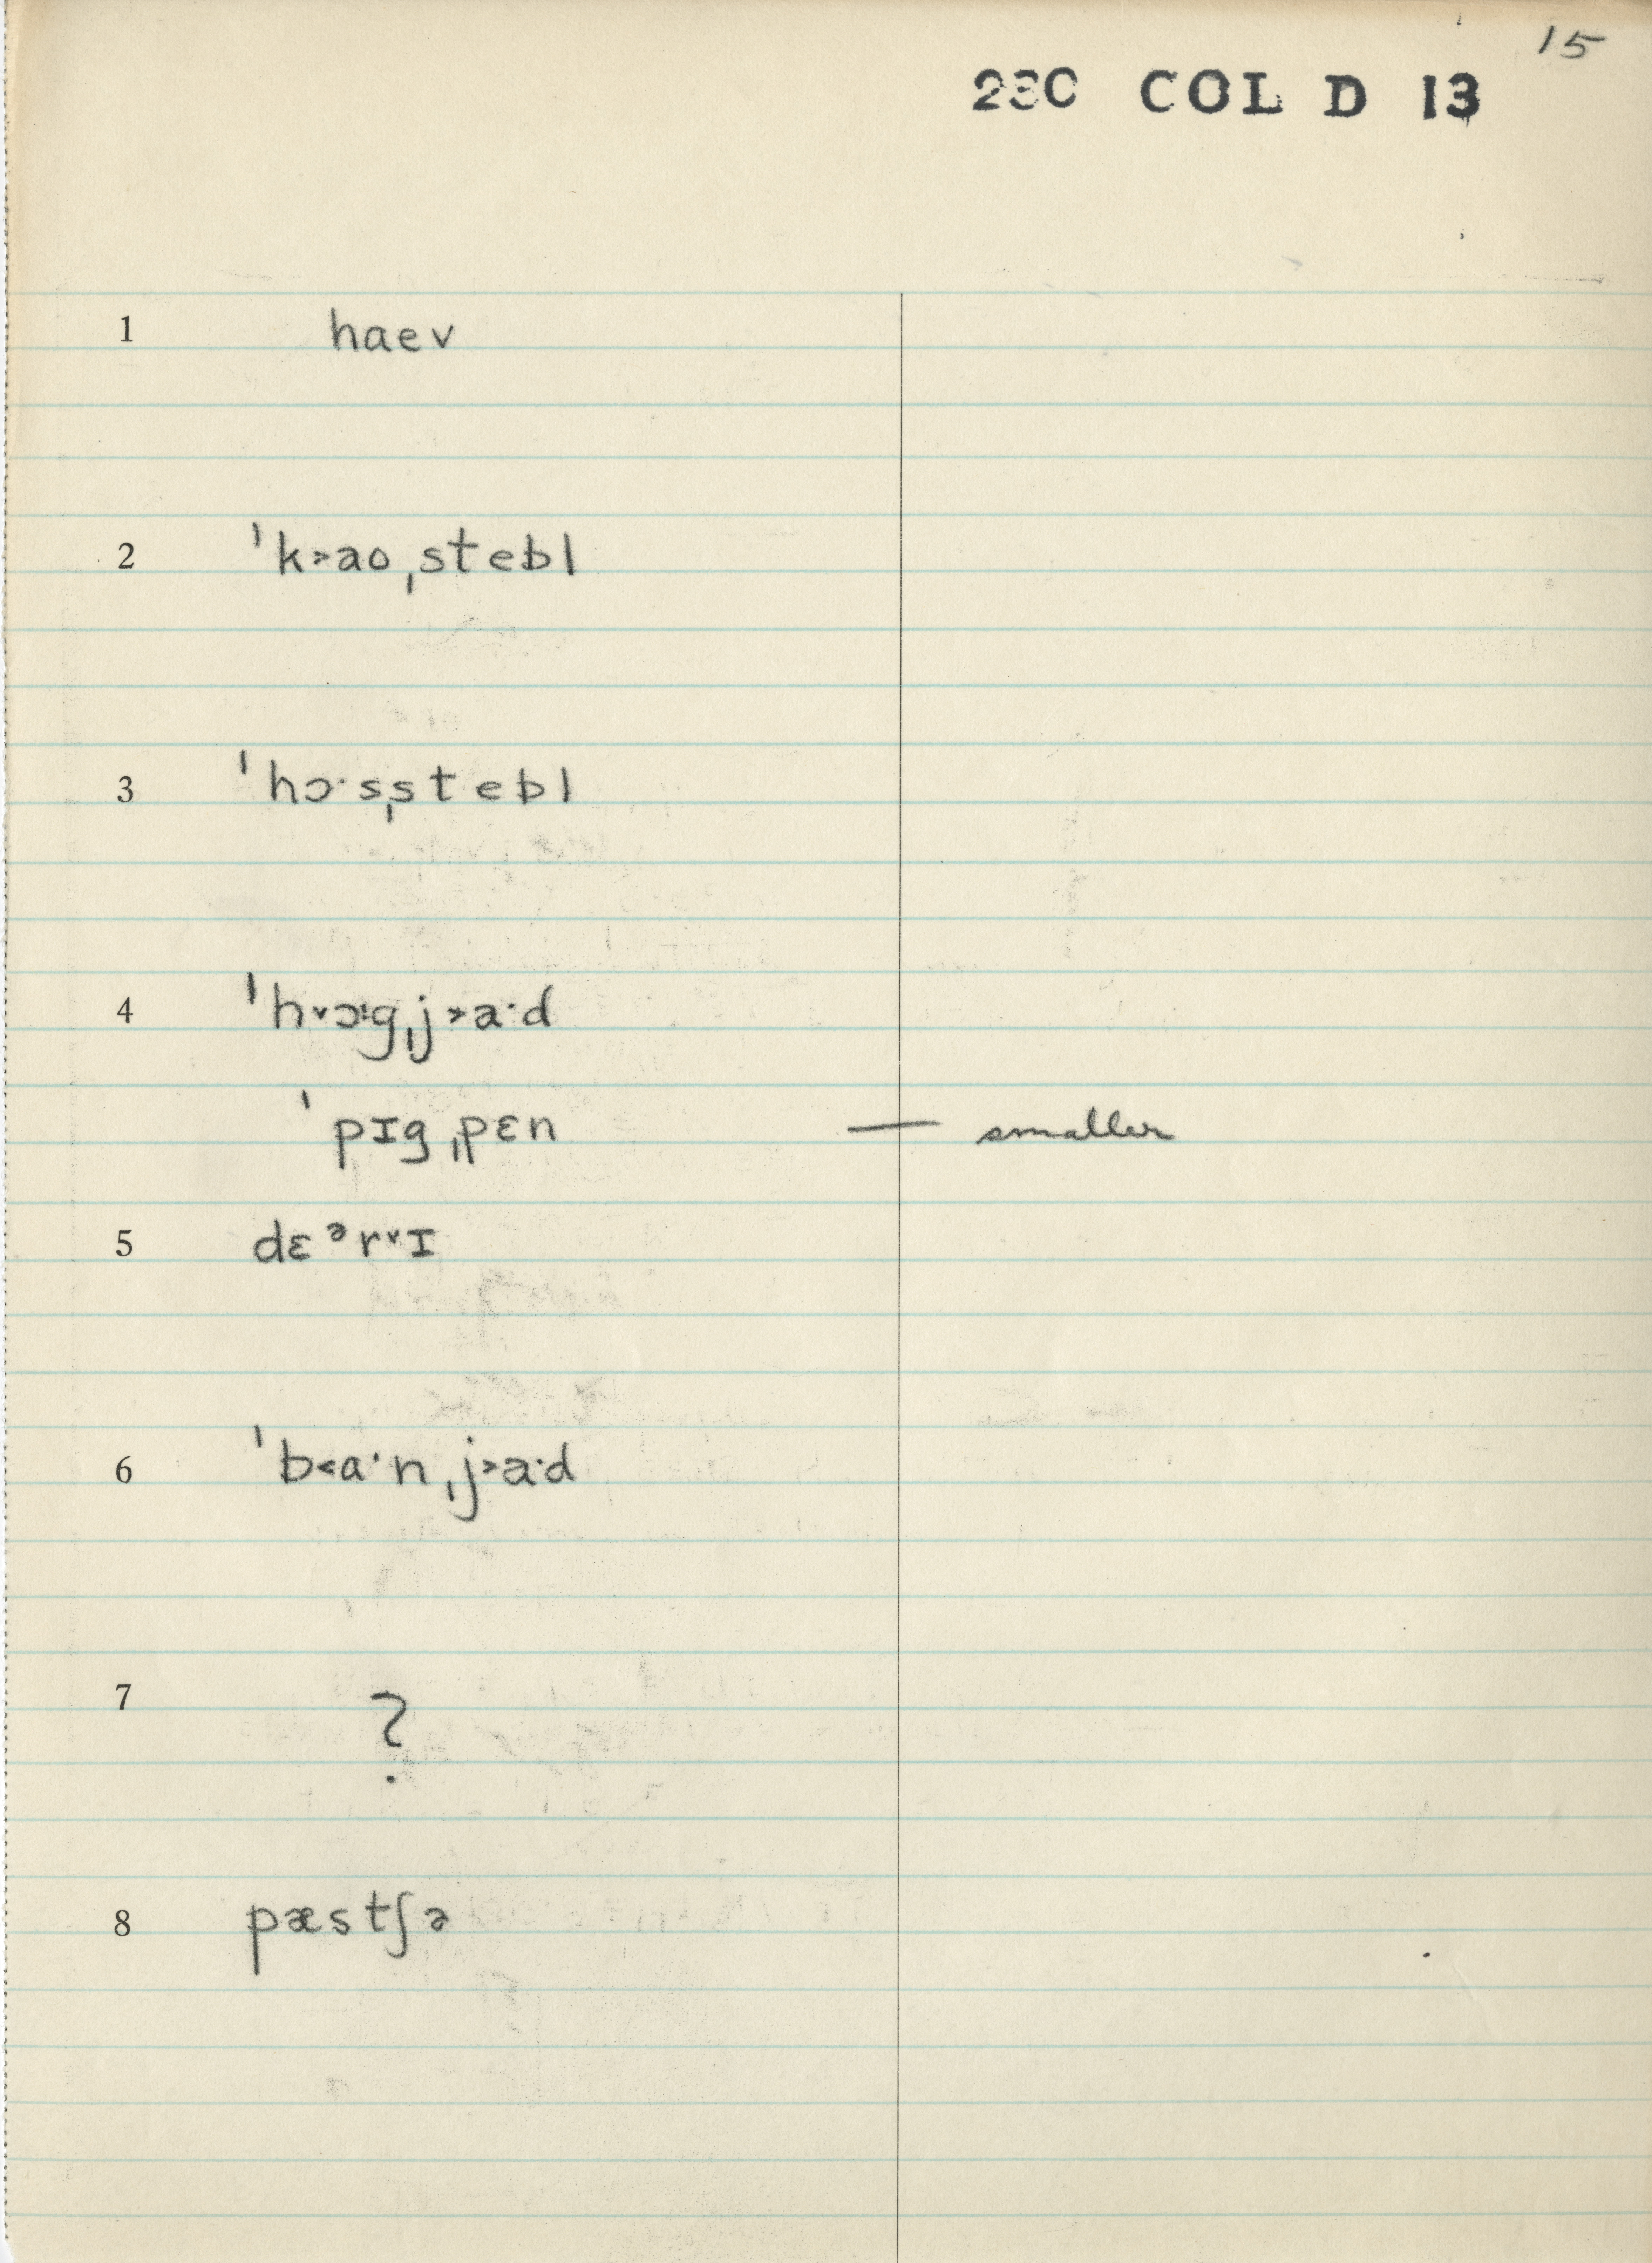 15
230 COL D 13
1 haev
2 ˈk˃aoˌstebl
3 ˈhɔ·sˌstebl
4 ˈh˅ɔ·gˌj˃a·d
ˈpɪgˌpɛn — smaller
5 dɛᵊr˅ɪ
6 ˈb˂a·nˌj˃a·d
7 ?
8 pæstʃə